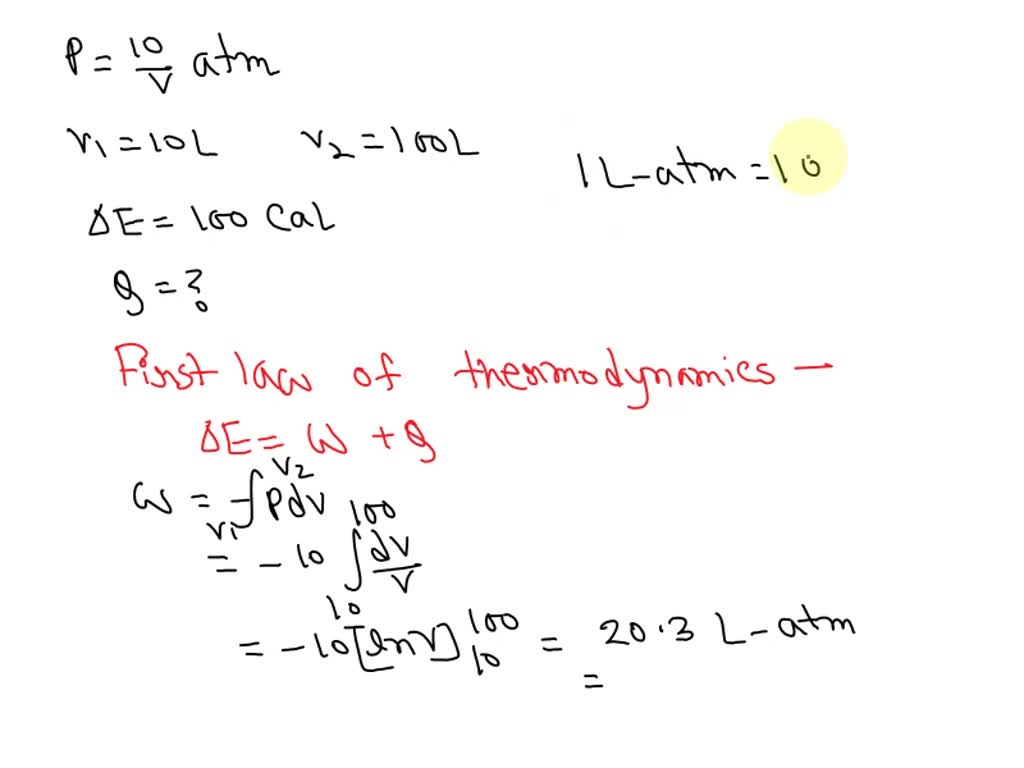 P = 10/V atm
V1 = 10L V2 = 100L
1 L-atm = 10
ΔE = 100 Cal
q = ?
First law of thermodynamics —
ΔE = W + q
W = -∫_{V1}^{V2} PdV
= -10 ∫_{10}^{100} dV/V
= -10 [lnV]_{10}^{100} = 20.3 L-atm
=